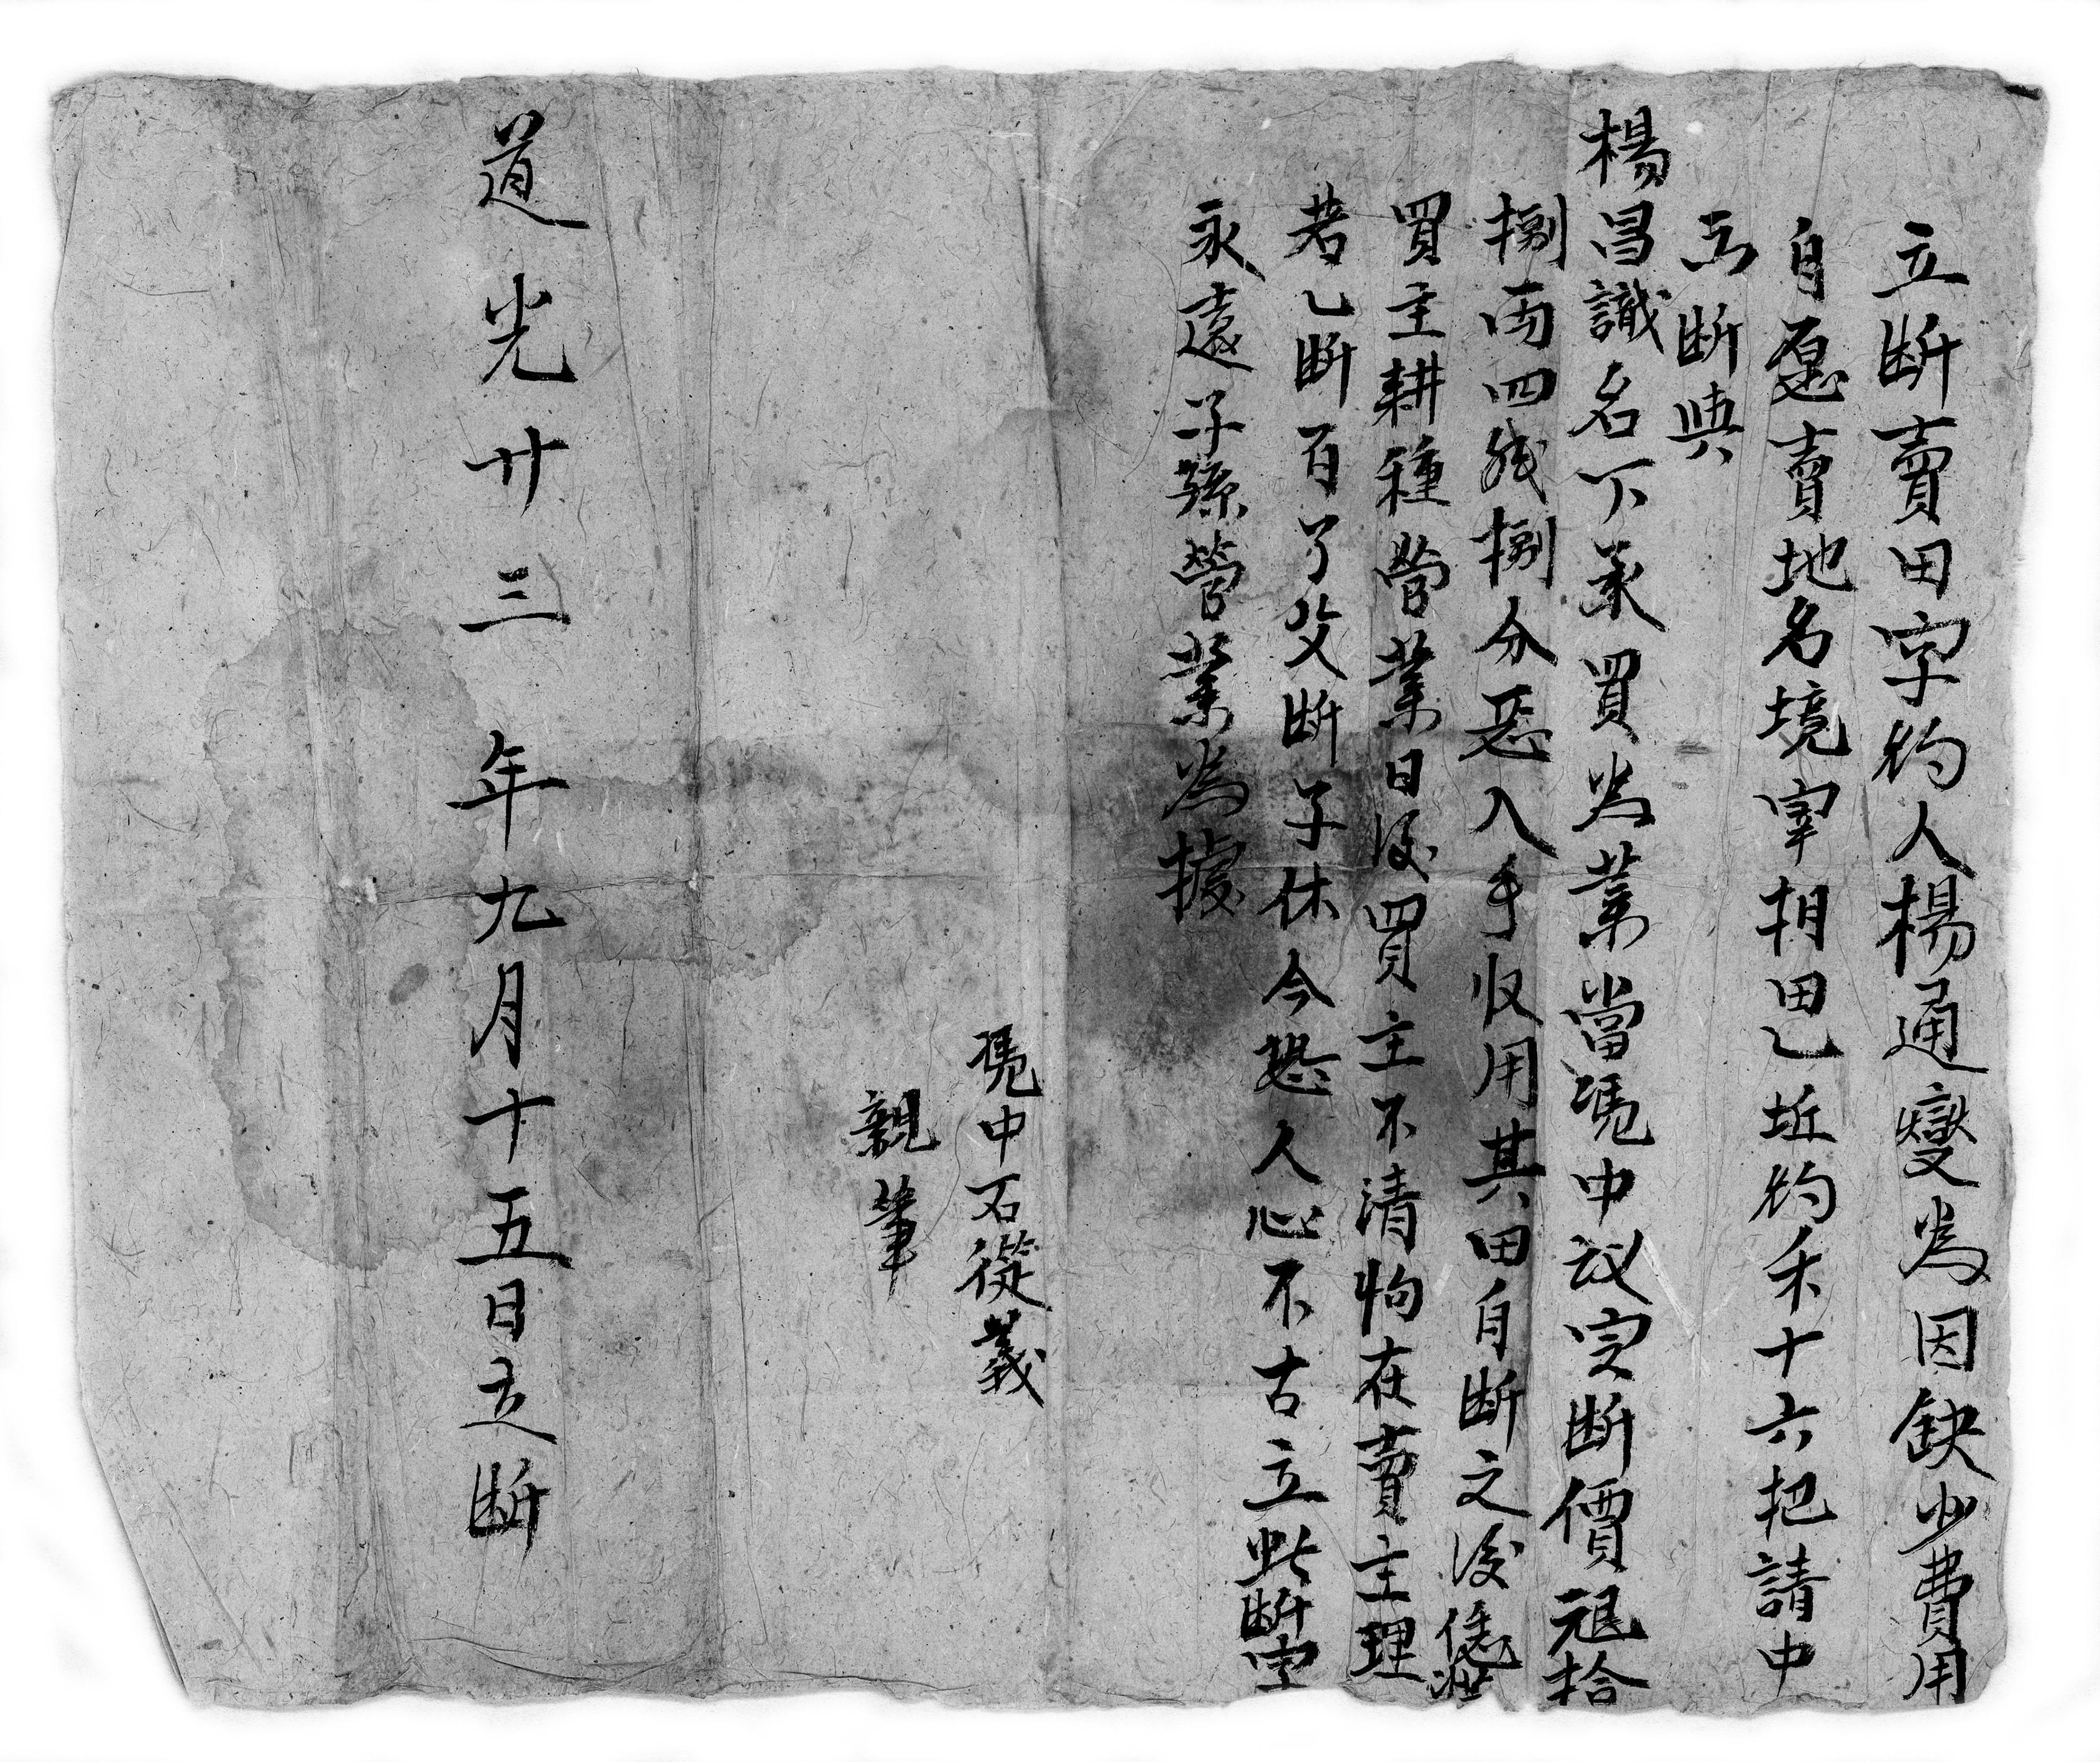 立断賣田字約人楊通變為因缺少費用
自愿賣地名境宰相田乙坵約禾十六把請中
出断與
楊昌識名下承買為業當憑中议定断價銀拾
捌両四戋捌分悉入手收用其田自断之後凭從
買主耕種營業日後買主不清怐在賣主理
若乙断百了父断子休今恐人心不古立此断字
永遠子孫營業為據
憑中石從義
親筆
道光廿三年九月十五日立断